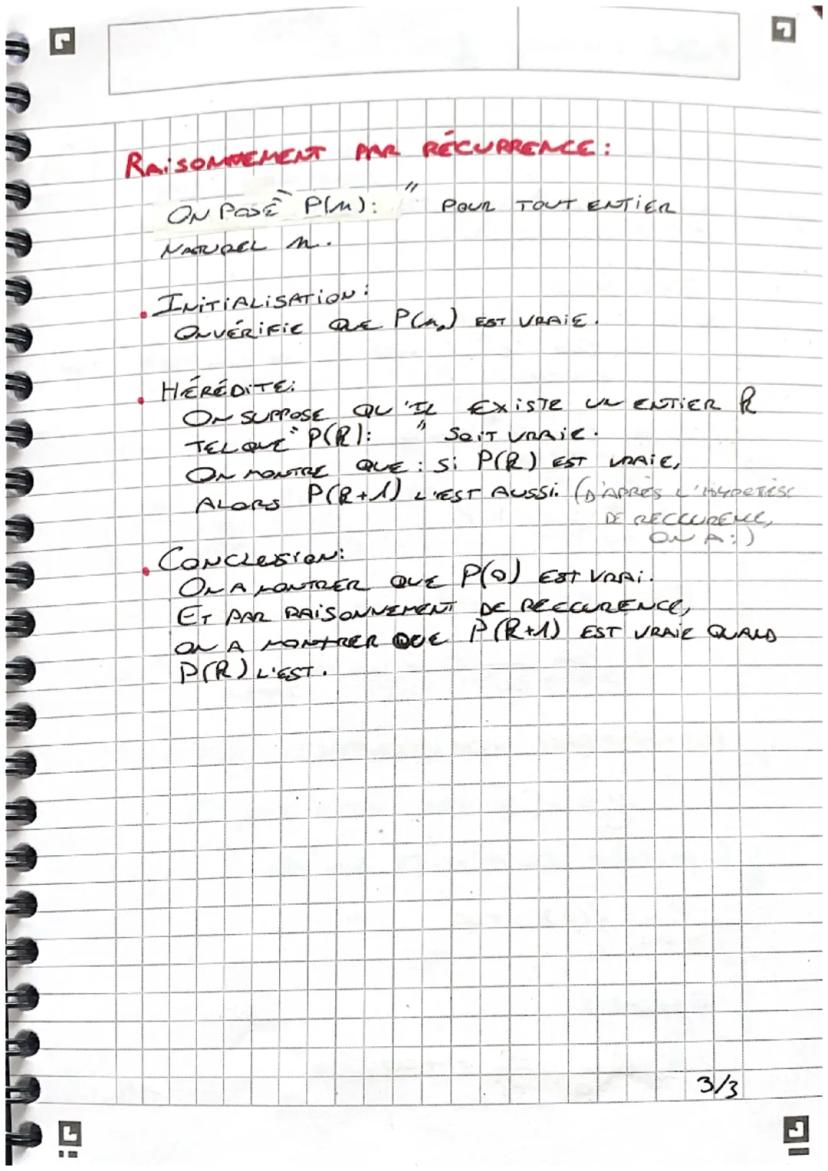 RAISONNEMENT PAR RÉCURRENCE :
ON POSE " P(n) : " POUR TOUT ENTIER
NATUREL n.
• INITIALISATION :
ON VÉRIFIE QUE P(n₀) EST VRAIE.
• HÉRÉDITÉ :
ON SUPPOSE QU'IL EXISTE UN ENTIER k
TEL QUE " P(k) : " SOIT VRAIE.
ON MONTRE QUE : SI P(k) EST VRAIE,
ALORS P(k+1) L'EST AUSSI. (D'APRÈS L'HYPOTÈSE
DE RECCURENCE,
ON A :)
• CONCLUSION :
ON A MONTRER QUE P(0) EST VRAI.
ET PAR RAISONNEMENT DE RECCURENCE,
ON A MONTRER QUE P(k+1) EST VRAIE QUAND
P(k) L'EST.
3/3